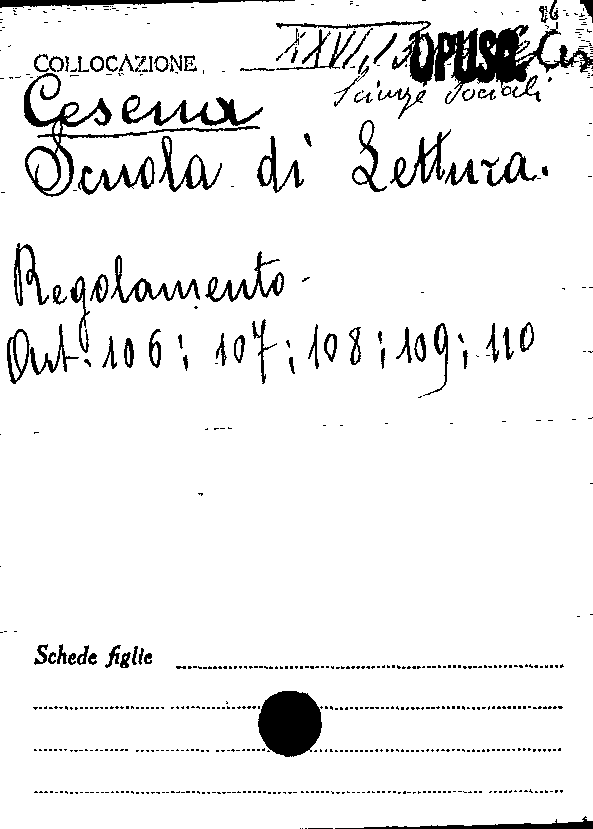 COLLOCAZIONE
OPUSC.
Scienze Sociali
Cesena
Scuola di Lettura.
Regolamento -
Art. 106; 107; 108; 109; 110
Schede figlie